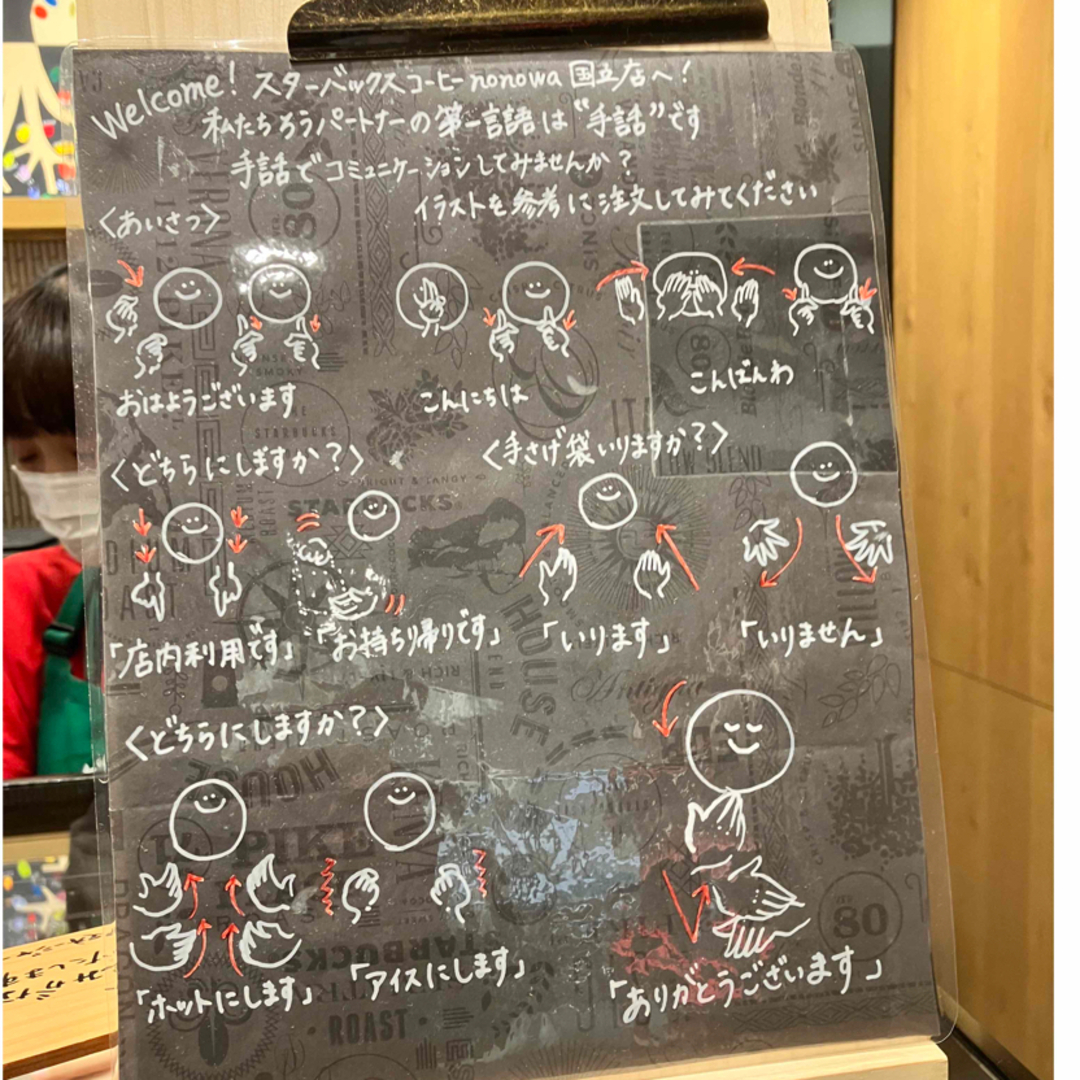 Welcome! スターバックスコーヒー nonowa 国立店へ!
私たちろうパートナーの第一言語は"手話"です
手話でコミュニケーションしてみませんか?
イラストを参考に注文してみてください
<あいさつ>
おはようございます
こんにちは
こんばんわ
<どちらにしますか?>
<手さげ袋いりますか?>
「店内利用です」
「お持ち帰りです」
「いります」
「いりません」
<どちらにしますか?>
「ホットにします」
「アイスにします」
「ありがとうございます」
STARBUCKS
HOUSE
PIKE
STARBUCKS
ROAST
80